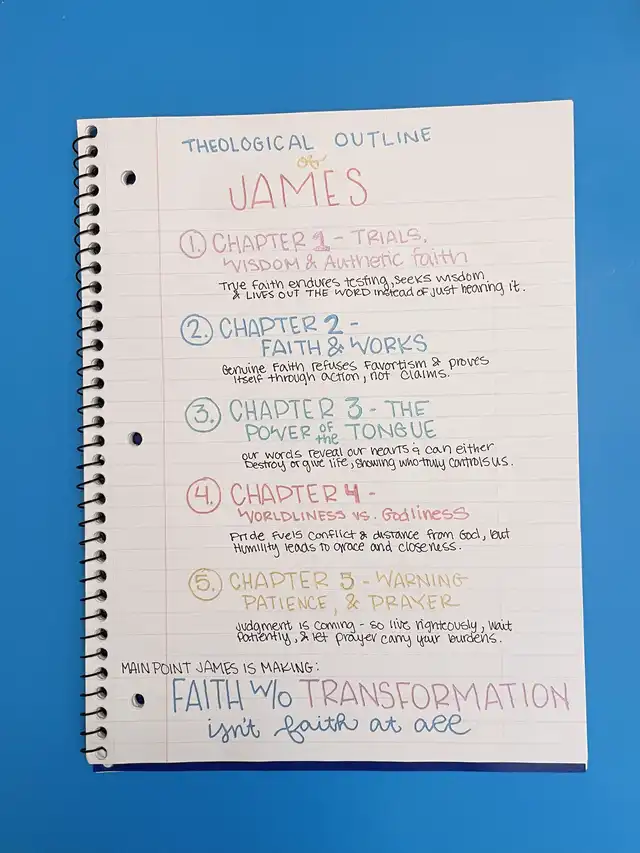 THEOLOGICAL OUTLINE
of
JAMES
1. CHAPTER 1 - TRIALS,
WISDOM & Authentic faith
True faith endures testing, seeks wisdom
& LIVES OUT THE WORD instead of just hearing it.
2. CHAPTER 2 -
FAITH & WORKS
Genuine Faith refuses Favortism & proves
itself through action, not claims.
3. CHAPTER 3 - THE
POWER of the TONGUE
our words reveal our hearts & can either
Destroy or give life, showing who truly controls us.
4. CHAPTER 4 -
WORLDLINESS vs. Godliness
Pride fuels conflict & distance from God, but
Humility leads to grace and closeness.
5. CHAPTER 5 - WARNING
PATIENCE, & PRAYER
Judgment is coming - so live righteously, wait
patiently, & let prayer carry your burdens.
MAIN POINT JAMES IS MAKING:
FAITH W/O TRANSFORMATION
isn't faith at all